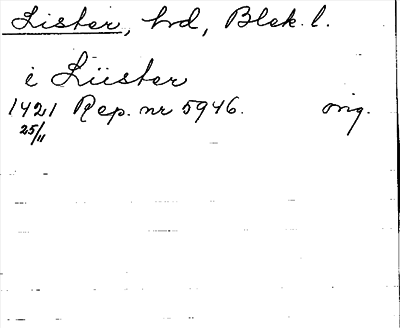 Lister, hd, Blek. l.
i Lüster
1421 Rep. nr 5946. orig.
25/11